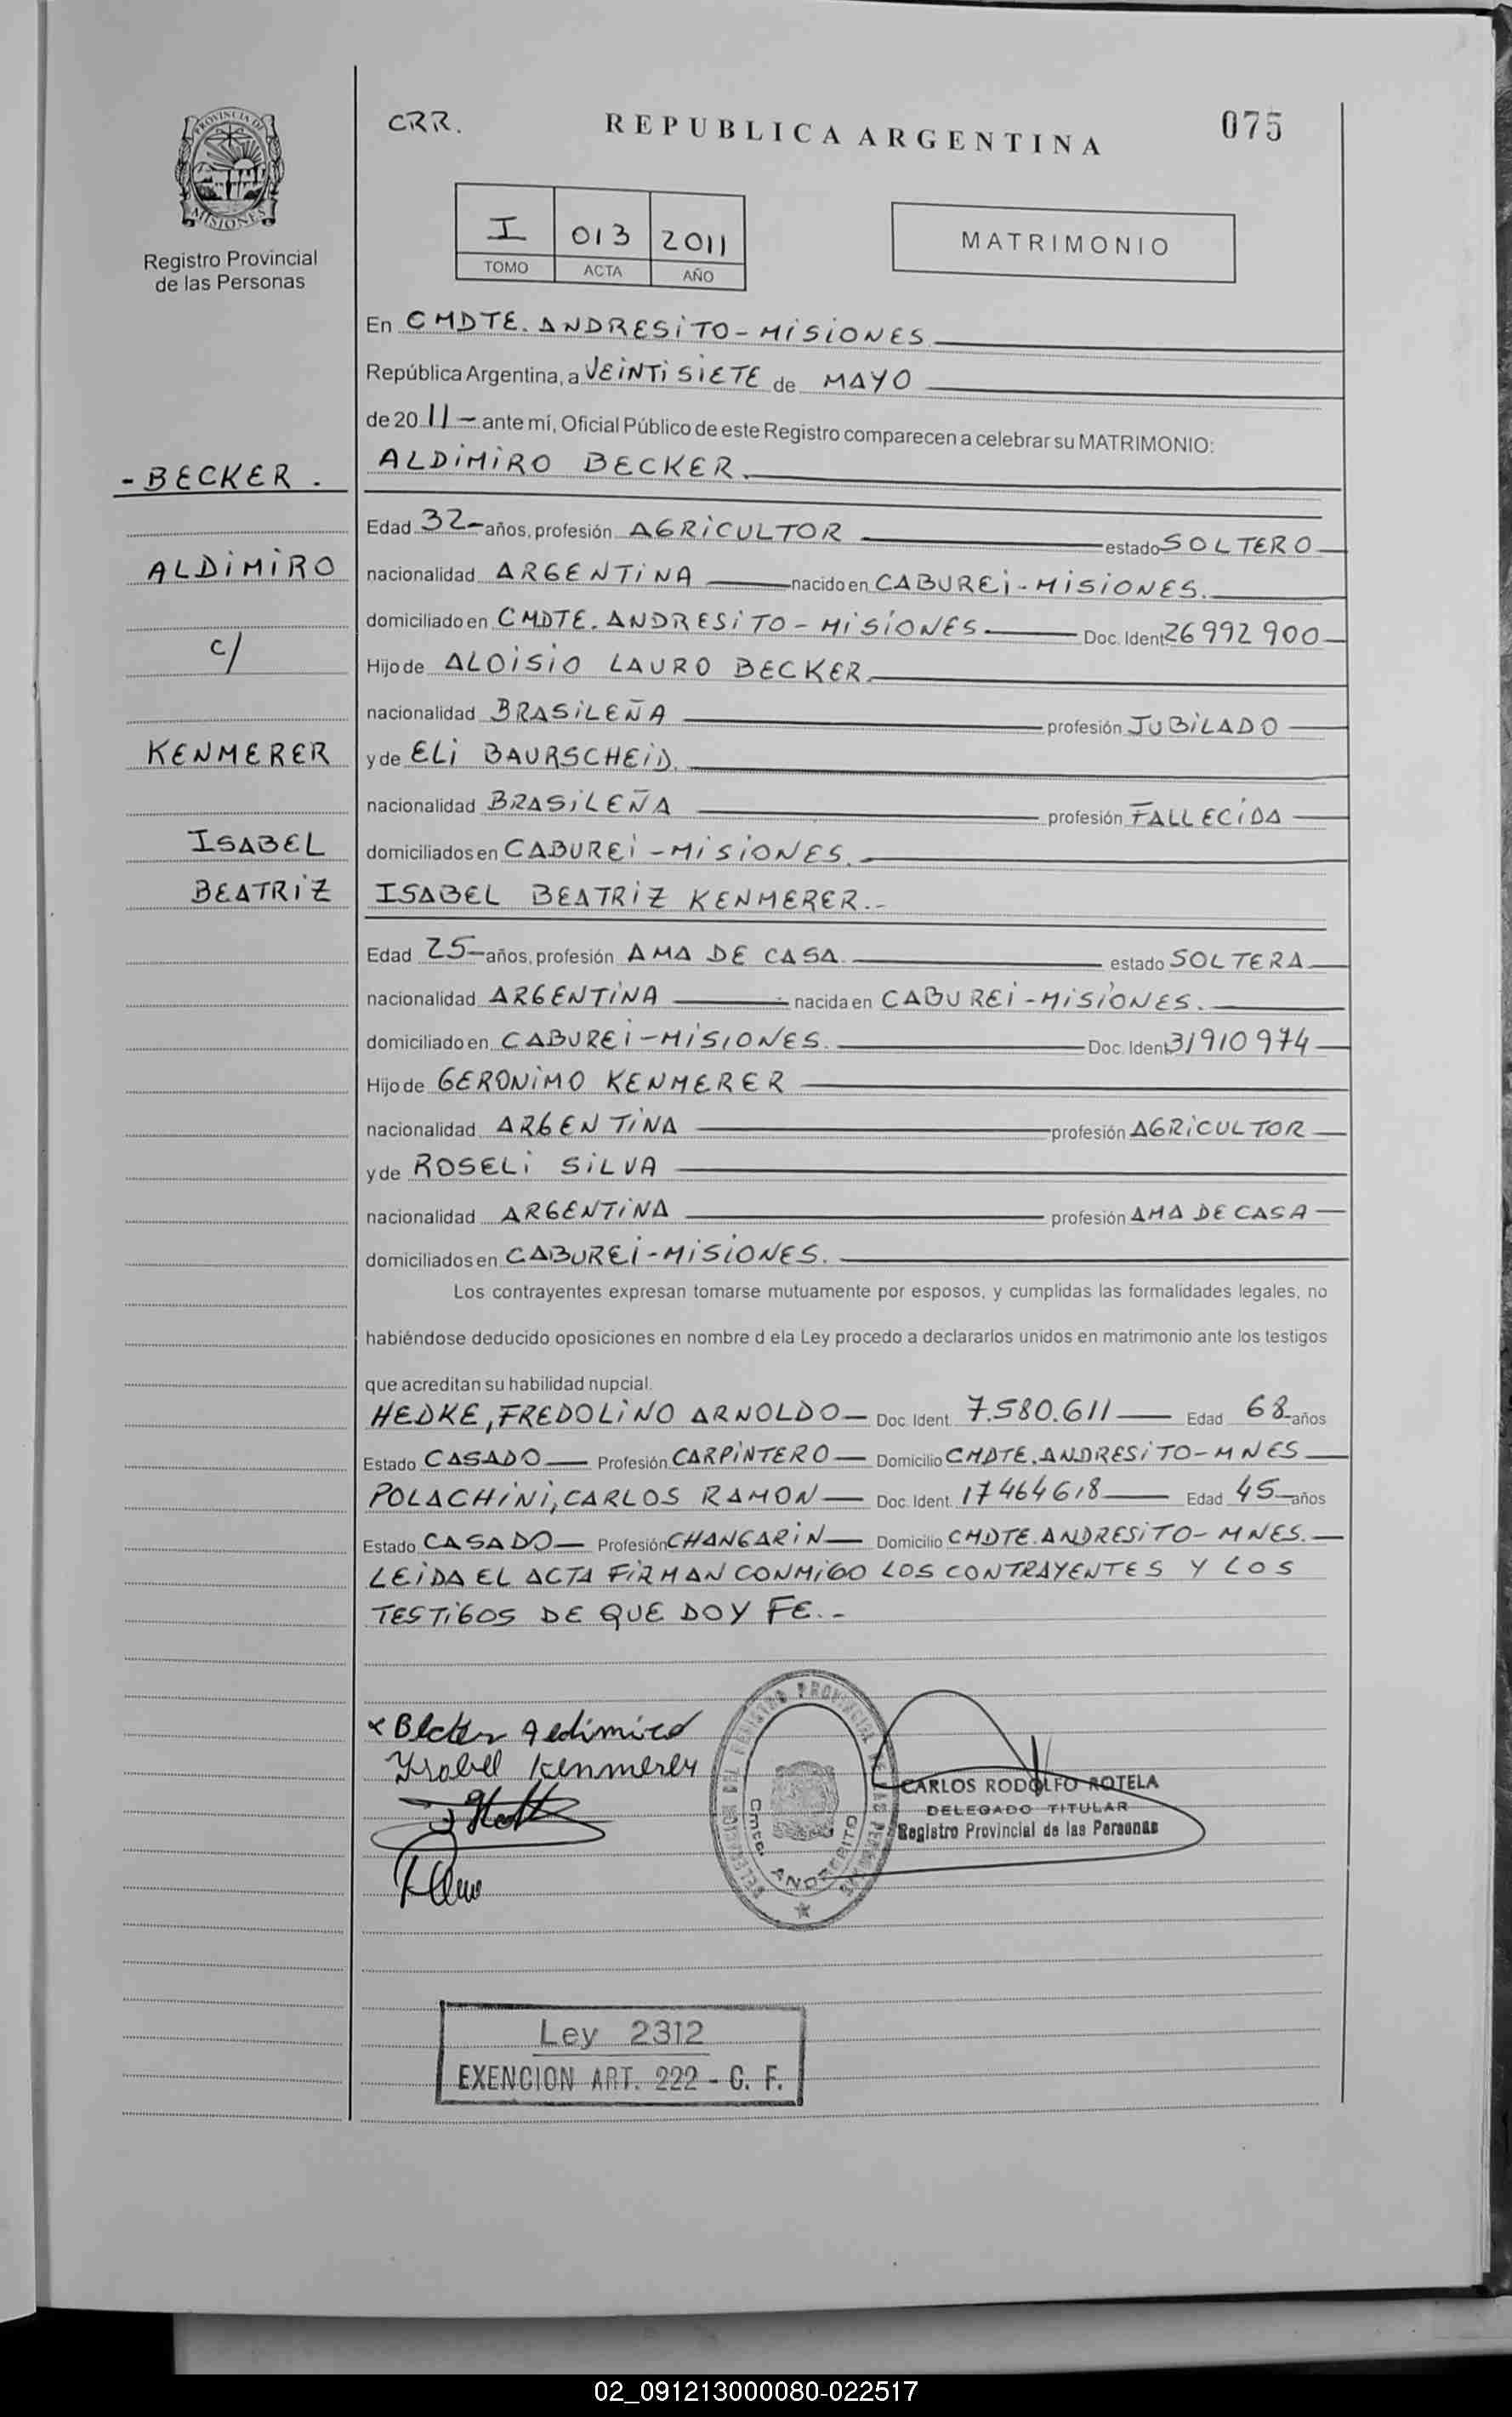 PROVINCIA DE
MISIONES
Registro Provincial
de las Personas
CRR.
REPUBLICA ARGENTINA
075
I 013 2011
TOMO ACTA AÑO
MATRIMONIO
En CMDTE. ANDRESITO - MISIONES
República Argentina, a VEINTISIETE de MAYO
de 20 11 - ante mí, Oficial Público de este Registro comparecen a celebrar su MATRIMONIO:
- BECKER .
ALDIMIRO BECKER.
Edad 32 - años, profesión AGRICULTOR estado SOLTERO
ALDIMIRO
nacionalidad ARGENTINA nacido en CABUREI - MISIONES.
domiciliado en CMDTE. ANDRESITO - MISIONES Doc. Ident 26 992 900
c/
Hijo de ALOISIO LAURO BECKER.
nacionalidad BRASILEÑA profesión JUBILADO
KENMERER
y de ELI BAURSCHEID.
nacionalidad BRASILEÑA profesión FALLECIDA
ISABEL
domiciliados en CABUREI - MISIONES.
BEATRIZ
ISABEL BEATRIZ KENMERER. -
Edad 25 - años, profesión AMA DE CASA. estado SOLTERA
nacionalidad ARGENTINA nacida en CABUREI - MISIONES.
domiciliado en CABUREI - MISIONES. Doc. Ident 31910974
Hijo de GERONIMO KENMERER
nacionalidad ARGENTINA profesión AGRICULTOR
y de ROSELI SILVA
nacionalidad ARGENTINA profesión AMA DE CASA
domiciliados en CABUREI - MISIONES.
Los contrayentes expresan tomarse mutuamente por esposos, y cumplidas las formalidades legales, no
habiéndose deducido oposiciones en nombre d ela Ley procedo a declararlos unidos en matrimonio ante los testigos
que acreditan su habilidad nupcial.
HEDKE, FREDOLINO ARNOLDO - Doc. Ident. 7.580.611 Edad 68 años
Estado CASADO Profesión CARPINTERO Domicilio CMDTE. ANDRESITO - MNES
POLACHINI, CARLOS RAMON - Doc. Ident. 17464618 Edad 45 años
Estado CASADO Profesión CHANGARIN Domicilio CMDTE. ANDRESITO - MNES.
LEIDA EL ACTA FIRMAN CONMIGO LOS CONTRAYENTES Y LOS
TESTIGOS DE QUE DOY FE. -
x Becker Aldimiro
Ysabel Kenmerer
CARLOS RODOLFO ROTELA
DELEGADO TITULAR
Registro Provincial de las Personas
Cmte. ANDRESITO
Ley 2312
EXENCION ART. 222 - C. F.
02_091213000080-022517